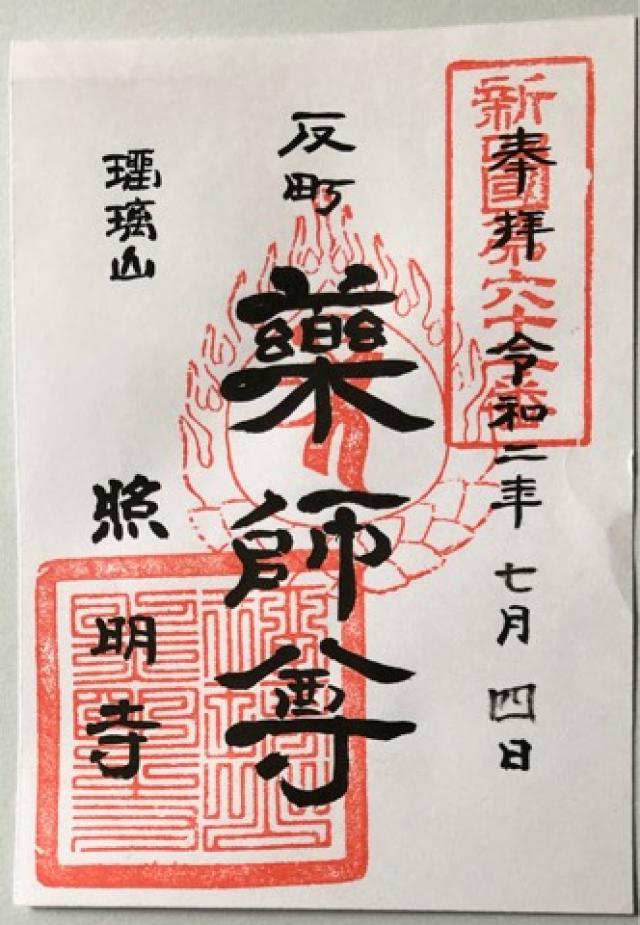 新
國第六十
番
奉拝 令和二年 七月 四日
反町
藥師尊
瑠璃山
照明寺